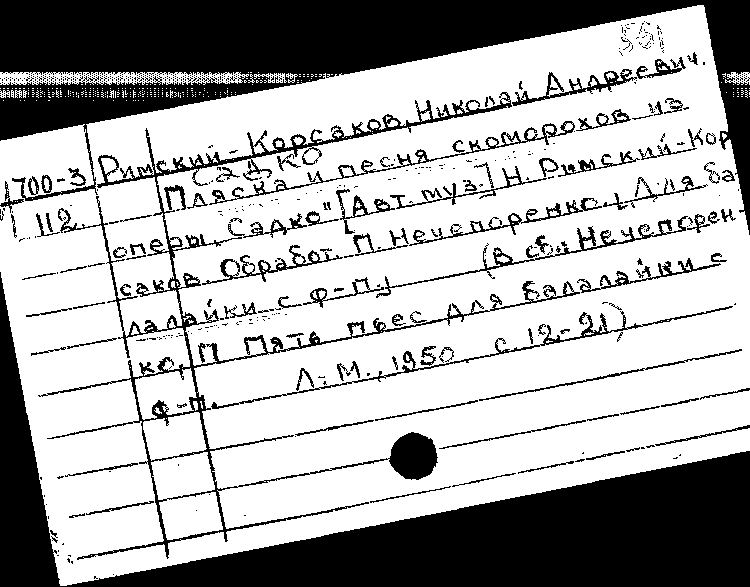 551
Римский-Корсаков, Николай Андреевич.
1700-3 Садко
112 Пляска и песня скоморохов из
оперы „Садко" [Авт. муз.] Н. Римский-Кор
саков. Обработ. П. Нечепоренко. [Для ба
лалайки с ф-п.] (В сб.: Нечепорен-
ко, П Пять пьес для балалайки с
ф-п. Л.-М., 1950. с. 12-21).